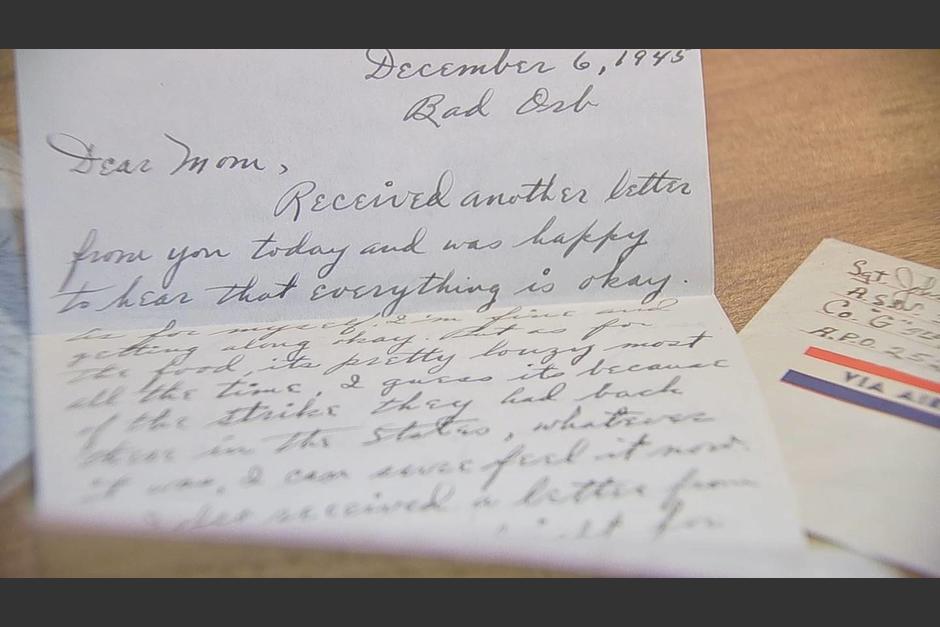 December 6, 1945
Bad Orb
Dear Mom,
Received another letter
from you today and was happy
to hear that everything is okay.
As for myself, I'm fine and
getting along okay. But as for
the food, its pretty louzy most
all the time, I guess its because
of the strike they had back
there in the States, whatever
it was, I can sure feel it now.
I also received a letter from
for
Sgt. John
A.S.N.
Co. "G"
A.P.O. 25
VIA AIR